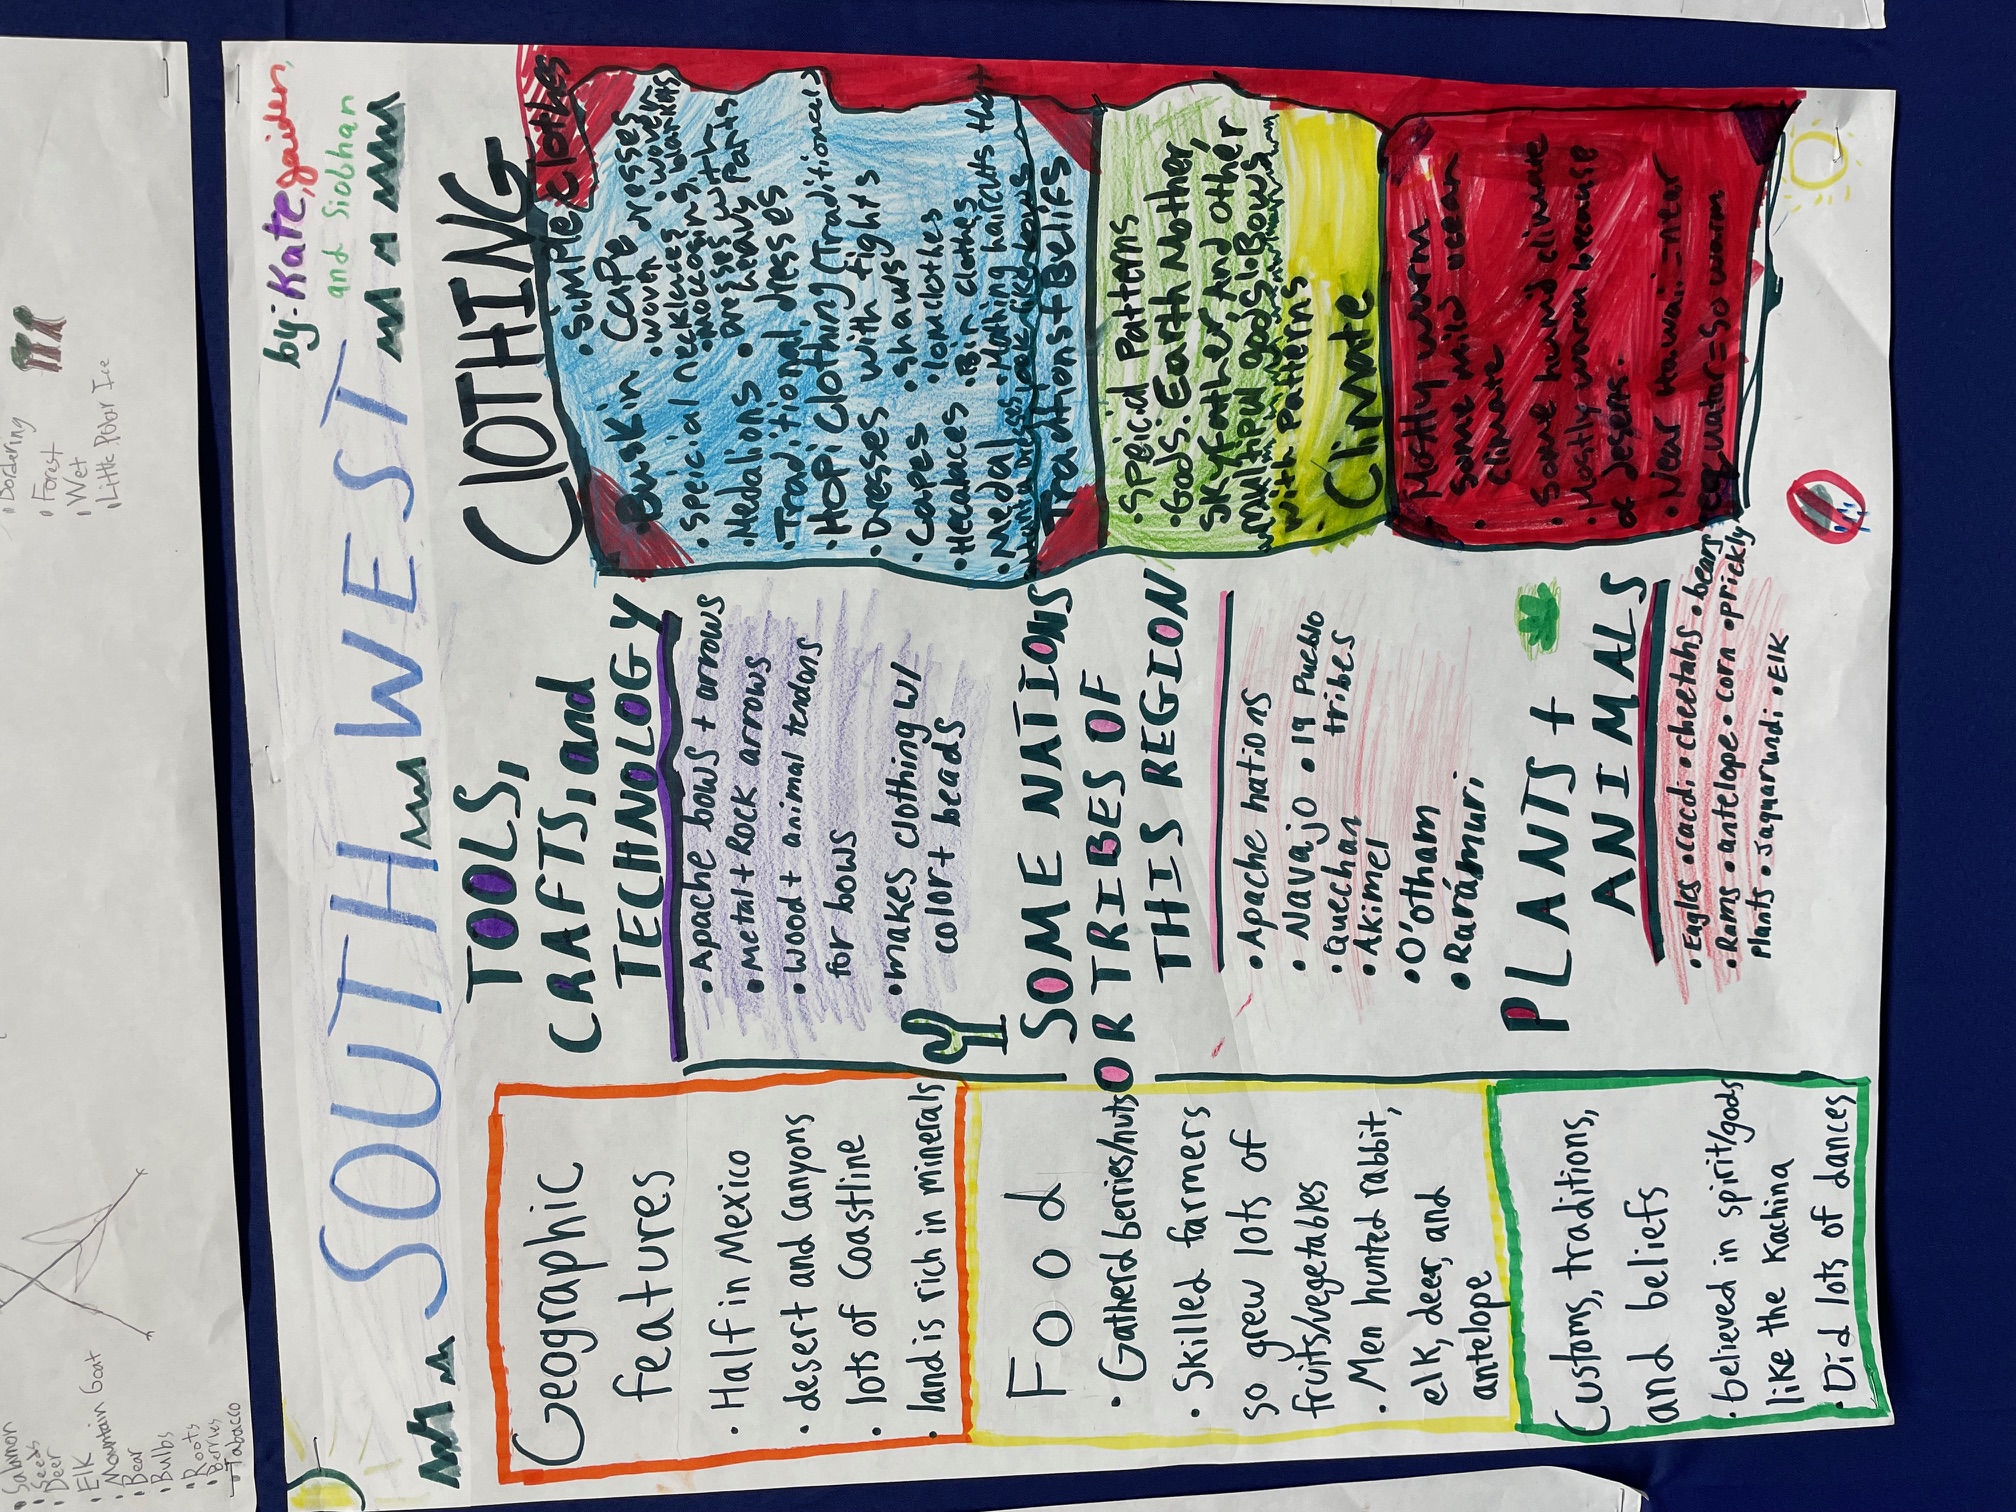 SOUTH WEST
by: Kate, jaiden,
and Siobhan
Geographic
features
• Half in Mexico
• desert and Canyons
• lots of Coastline
• land is rich in minerals
Food
• Gatherd berries/nuts
• Skilled farmers
so grew lots of
fruits/vegetables
• Men hunted rabbit,
elk, deer, and
antelope
Customs, traditions,
and beliefs
• believed in spirit/gods
like the Kachina
• Did lots of dances
TOOLS,
CRAFTS, and
TECHNOLOGY
• Apache bows + arrows
• Metal + Rock arrows
• Wood + animal tendons
for bows
• makes clothing w/
color + beads
SOME NATIONS
OR TRIBES OF
THIS REGION
• Apache nations
• Navajo • 19 Pueblo
tribes
• Quechan
• Akimel
• O'otham
• Rarámuri
PLANTS +
ANIMALS
• Eagles • cacdi • cheetahs • bears
• Rams • antelope • corn • prickly
plants • Jaguarundi • Elk
ClOTHING
• Simple clothes
• Buskin cape dresses
• woven works
• special necklaces
• moccasins
• Medalions • dresses with
• Traditional dresses
• Hopi Clothing (Traditional)
• Dresses with tights
• Capes • shawls
• lomclothes
• Necalaces
• Medal
Traditions + Belifs
• Speicid patterns
• Gods: Earth Mother,
Sky father And other
multipul gods
with patterns
• Climate
• Mostly warm
some mild ocean
climate
• Some humid climate
• Mostly warm because
of desert.
• Near Hawaii = near
equator = so warm
• Bordering
• Forest
• Wet
• Little Polar Ice
• Salamon
• Seeds
• Deer
• Elk
• Mountain Goat
• Bear
• Bulbs
• Roots
• Berries
• Tabacco